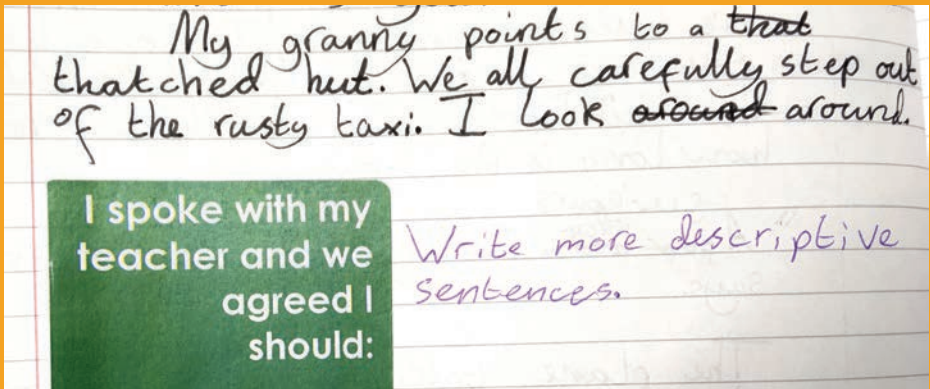 My granny points to a that
thatched hut. We all carefully step out
of the rusty taxi. I look around around.
I spoke with my
teacher and we
agreed I
should:
Write more descriptive
sentences.